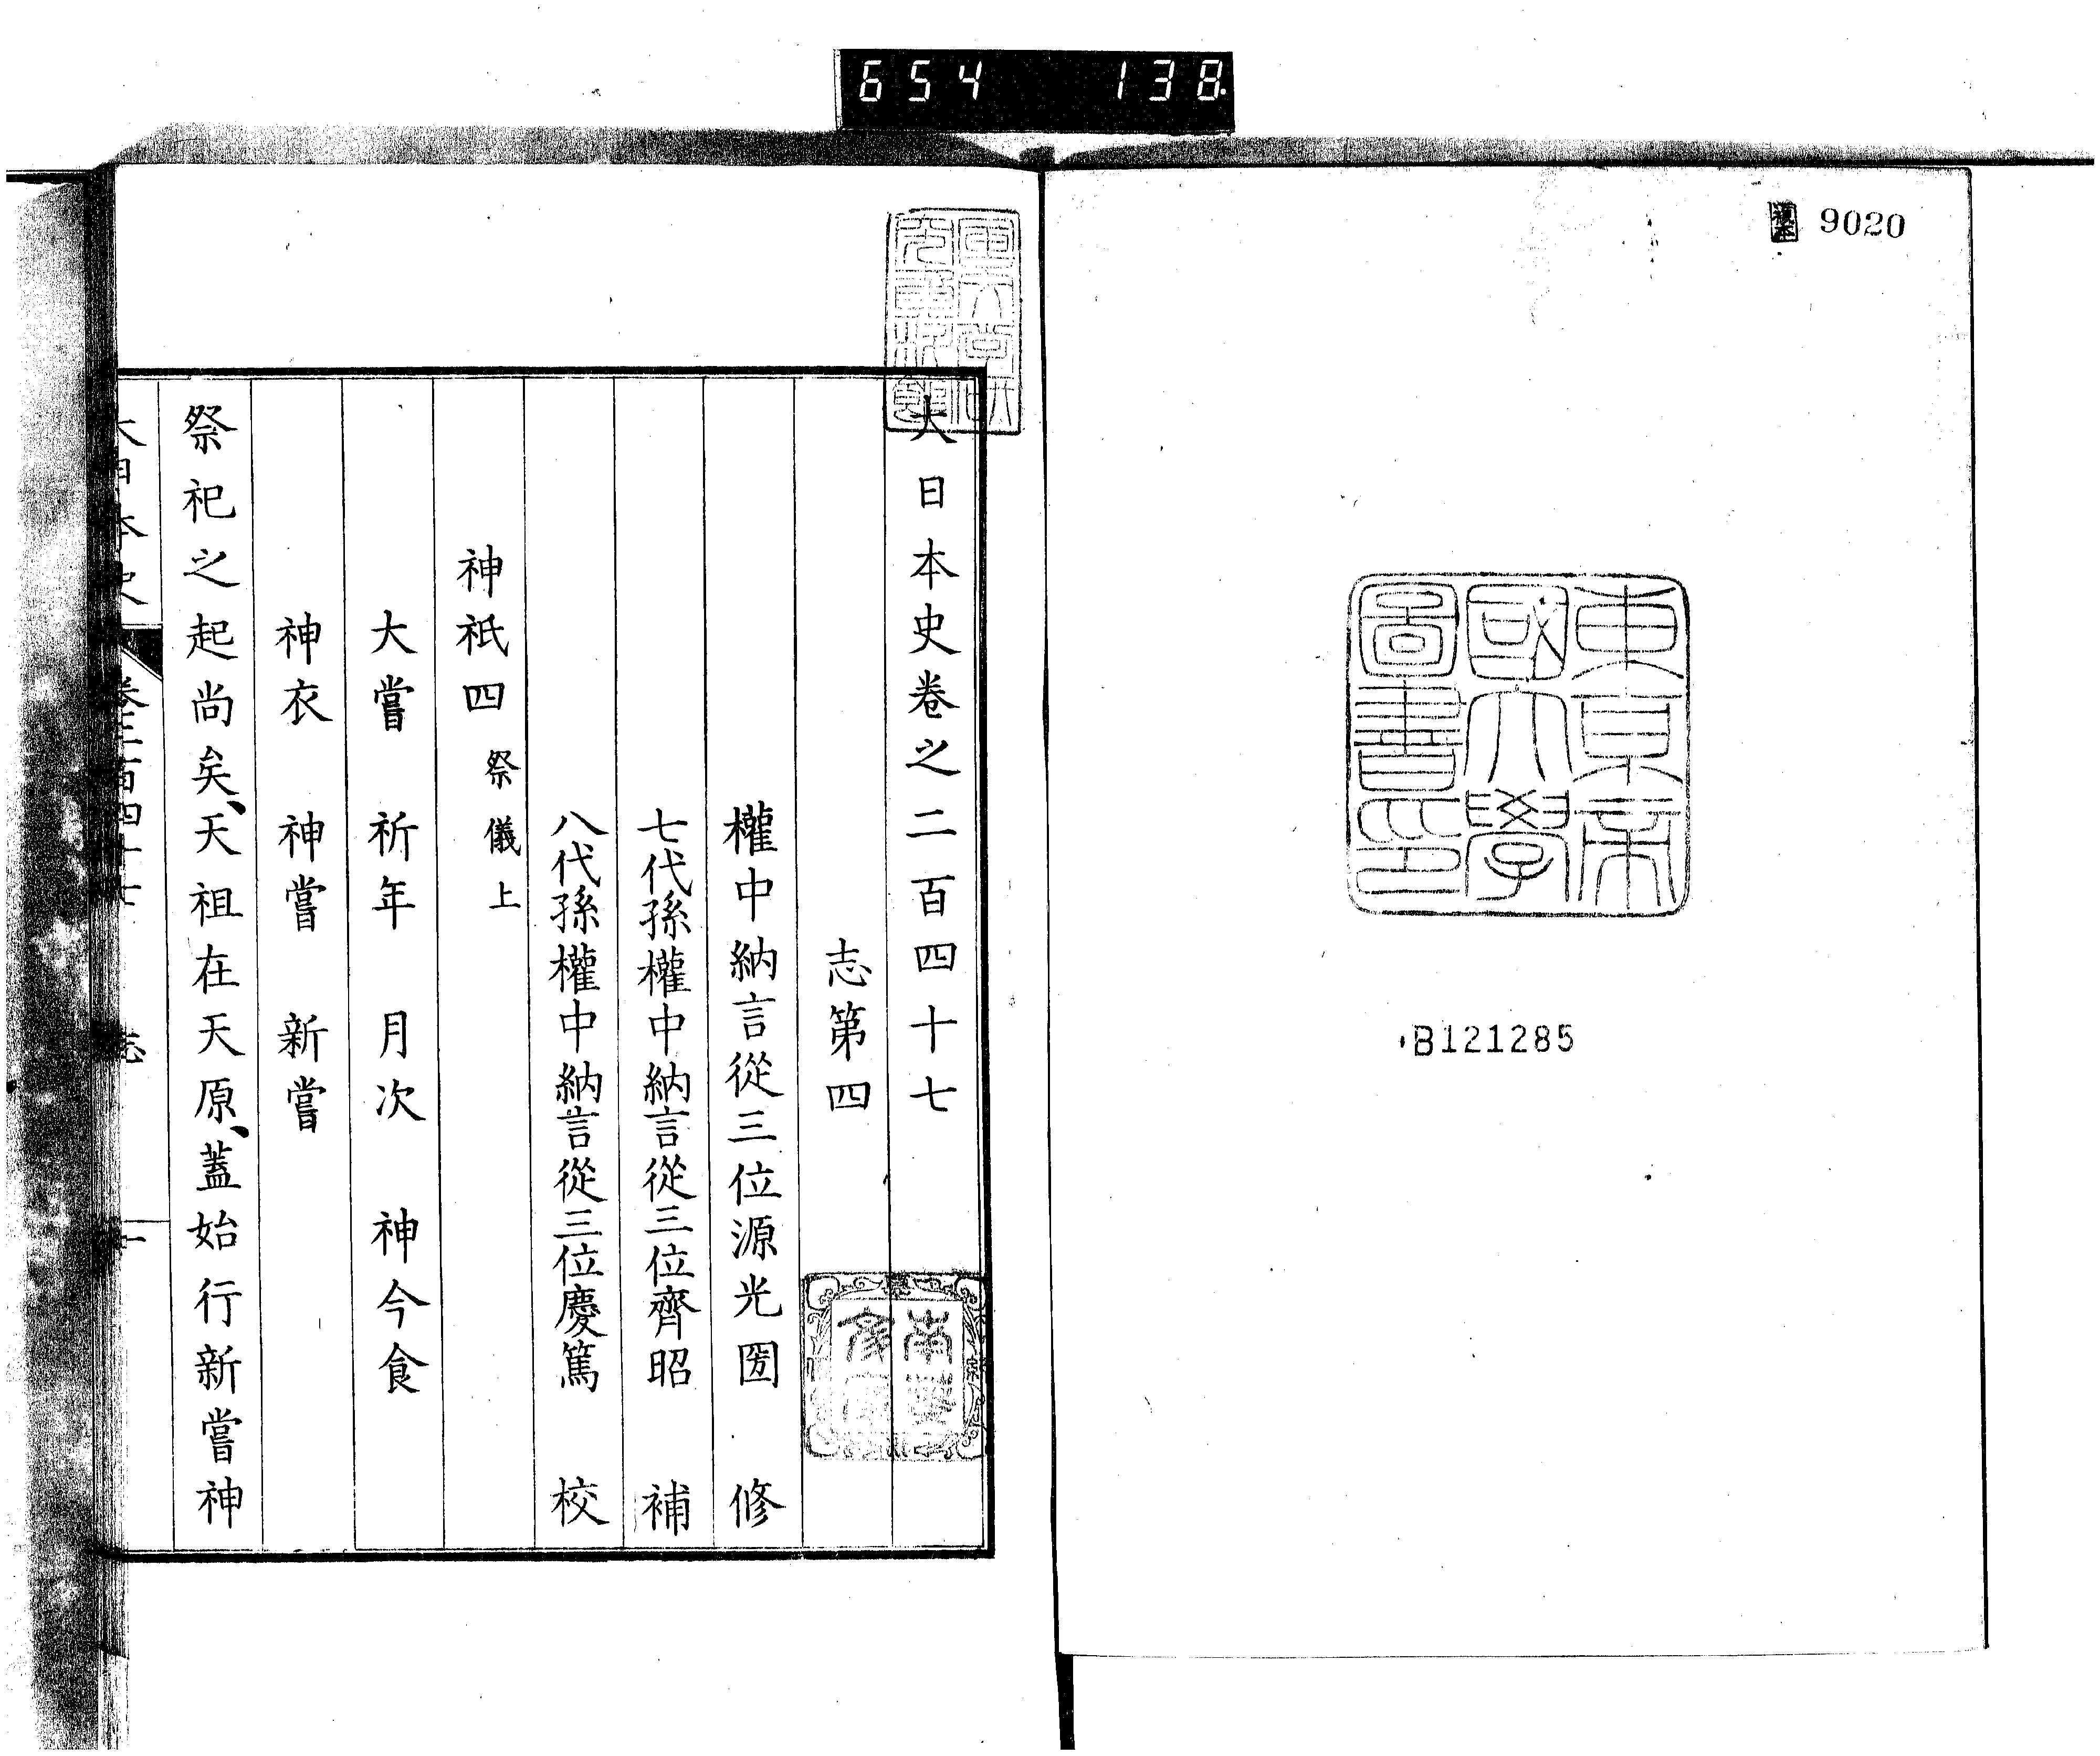 654 138
複本 9020
東京帝
國大學
圖書印
B121285
大日本史卷之二百四十七
志第四
權中納言從三位源光圀 修
七代孫權中納言從三位齊昭 補
八代孫權中納言從三位慶篤 校
神祇四 祭儀上
大嘗 祈年 月次 神今食
神衣 神嘗 新嘗
祭祀之起尚矣、天祖在天原、蓋始行新嘗神
大日本史 卷二百四十七 志 一